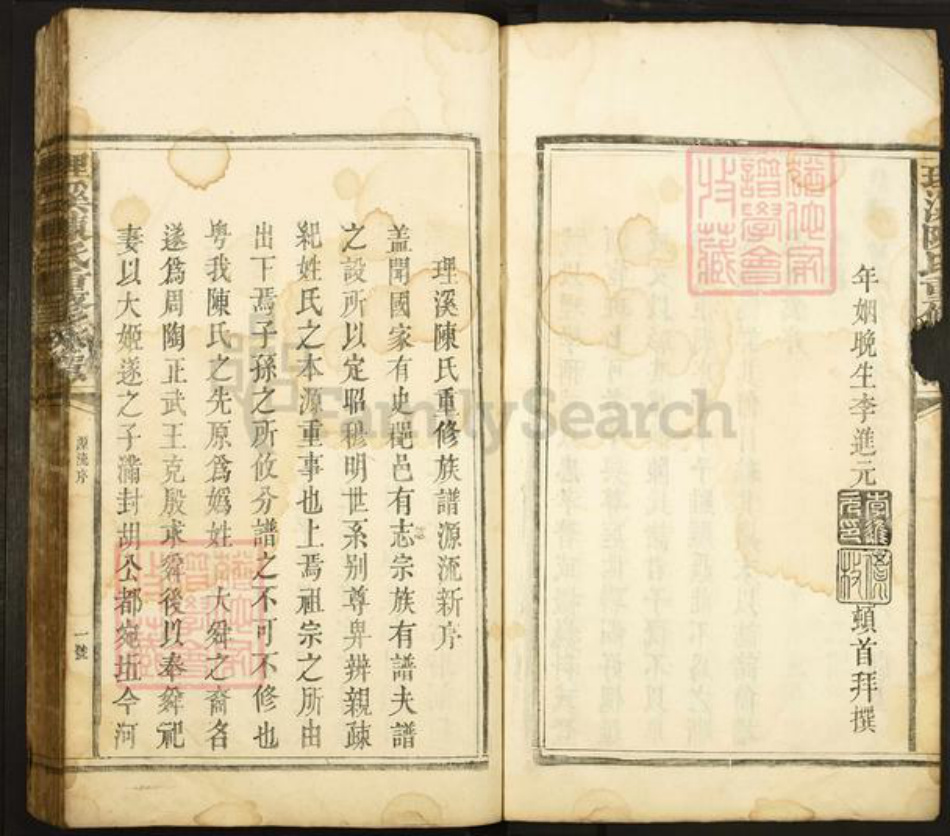 年姻晚生李進元
李進元印
頓首拜撰
理溪陳氏重修族譜源流新序
蓋聞國家有史郡邑有志宗族有譜夫譜
之設所以定昭穆明世系別尊卑辨親疎
紀姓氏之本源重事也上焉祖宗之所由
出下焉子孫之所攸分譜之不可不修也
粤我陳氏之先原爲嬀姓 大舜之裔名
遂爲周陶正武王克殷求舜後以奉舜祀
妻以大姬遂之子滿封胡公都宛坵今河
源流序
一號
FamilySearch